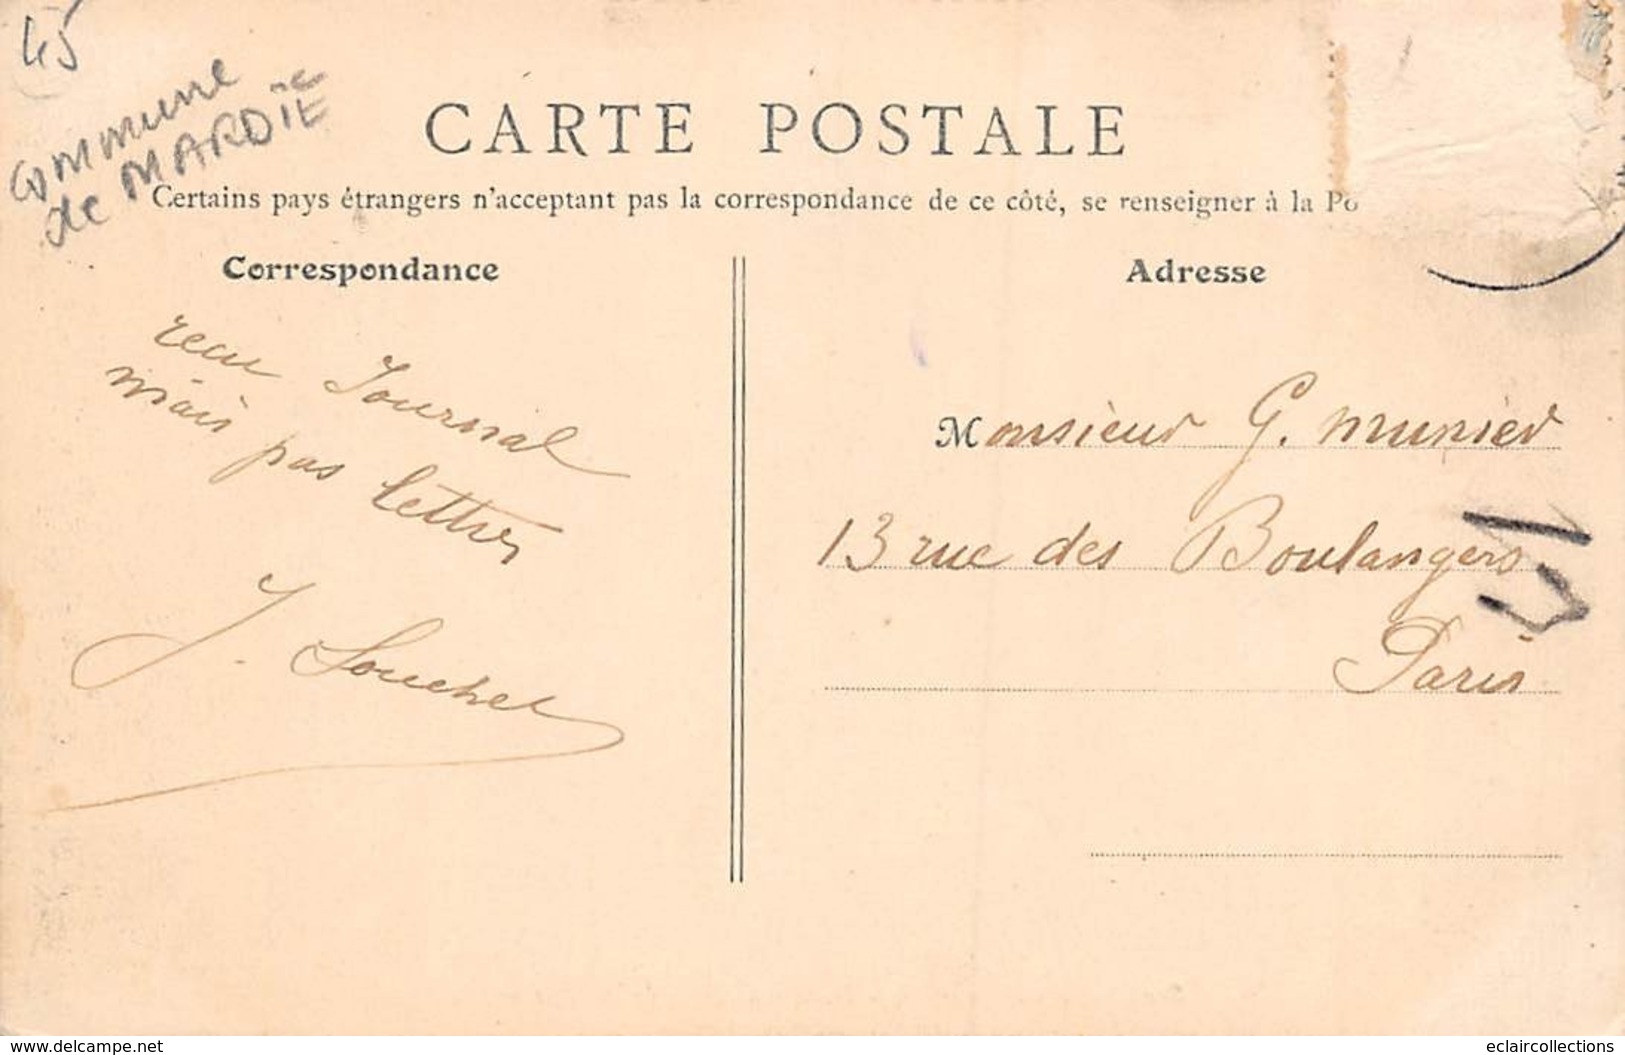 45
commune
de MARDIE
CARTE POSTALE
Certains pays étrangers n'acceptant pas la correspondance de ce côté, se renseigner à la Po
Correspondance
Adresse
recu Journal
mais pas lettres
J. Souchet
Monsieur G. Munier
13 rue des Boulangers
Paris
www.delcampe.net
eclaircollections